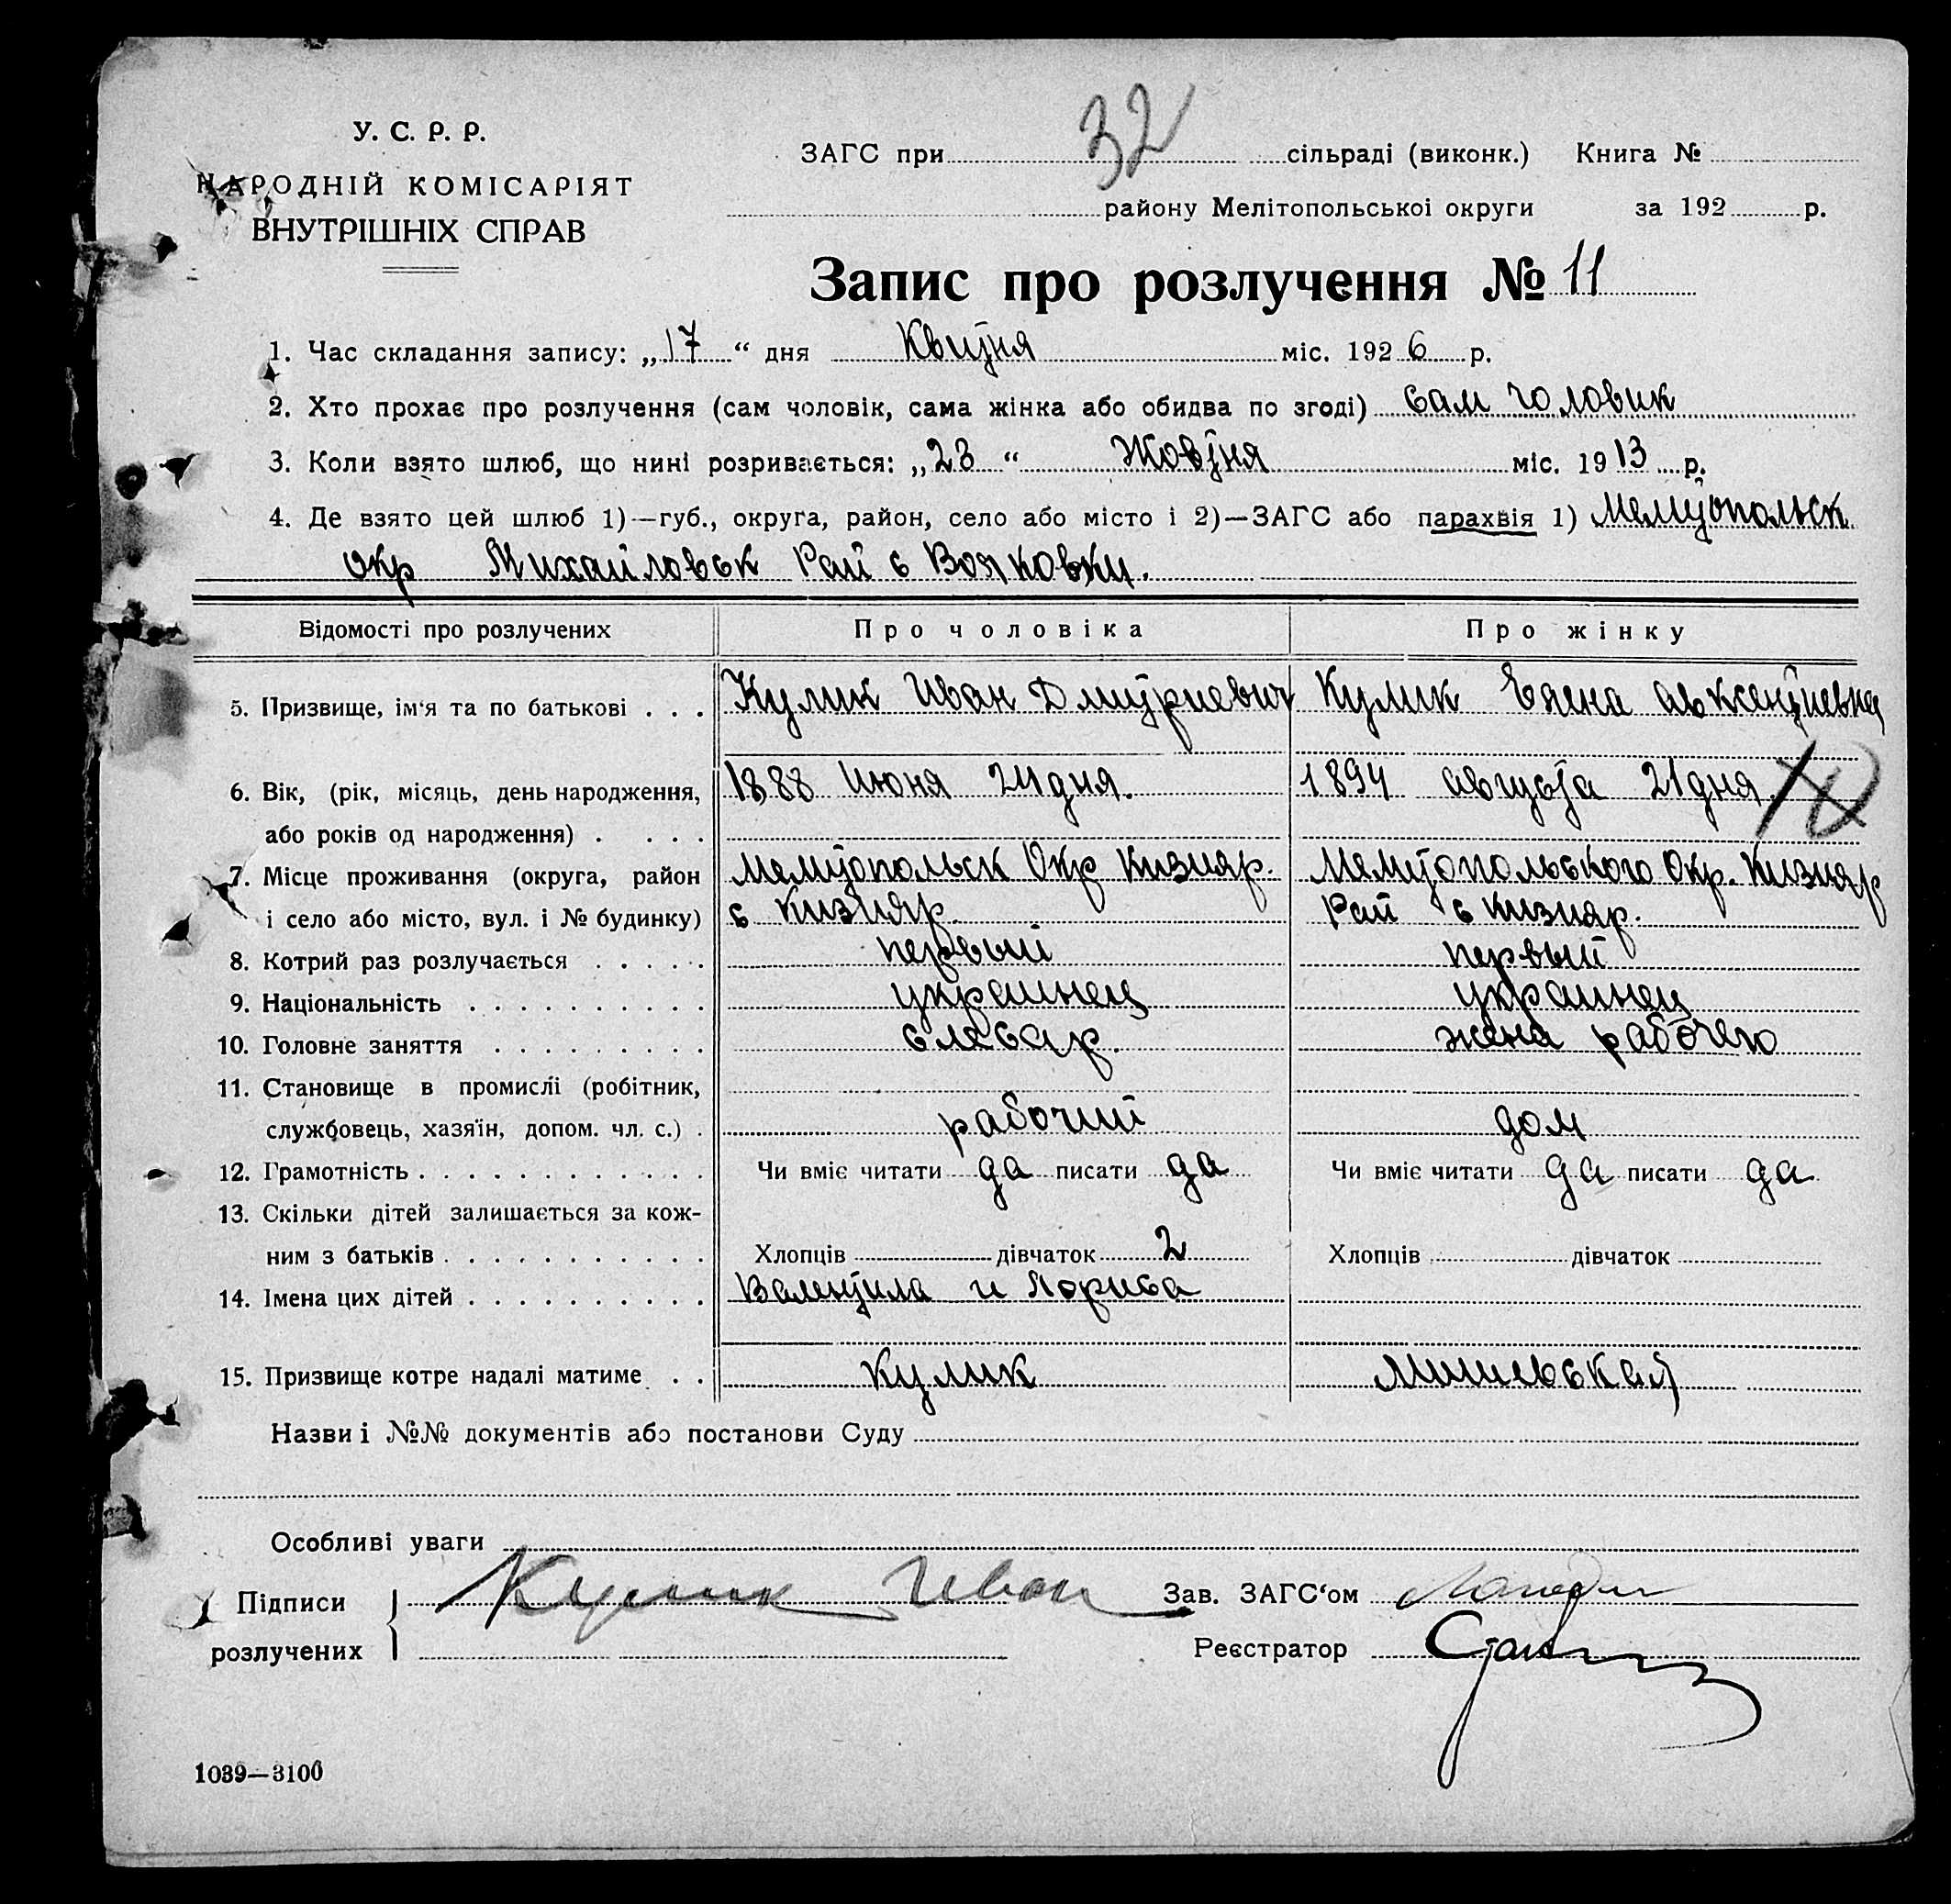 32
У. С. Р. Р.
НАРОДНІЙ КОМІСАРІЯТ
ВНУТРІШНІХ СПРАВ
ЗАГС при сільраді (виконк.) Книга №
району Мелітопольської округи за 192 р.
Запис про розлучення № 11
1. Час складання запису: „17“ дня Квитня міс. 1926 р.
2. Хто прохає про розлучення (сам чоловік, сама жінка або обидва по згоді) Сам чоловик
3. Коли взято шлюб, що нині розривається: „23“ Жовтня міс. 1913 р.
4. Де взято цей шлюб 1)—губ., округа, район, село або місто і 2)—ЗАГС або парахвія 1) Мелитопольск
окр Михайловск Рай с
Відомості про розлучених Про чоловіка Про жінку
5. Призвище, ім'я та по батькові . . . Кулик Иван Дмитриевич Кулик Елена
6. Вік, (рік, місяць, день народження, 1888 Июня 24 дня. 1894 Августа 21 дня.
або років од народження) . . . . .
7. Місце проживання (округа, район Мелитопольск Окр Кизияр. Мелитопольського Окр. Кизияр
і село або місто, вул. і № будинку) с Кизияр. Рай с Кизияр.
8. Котрий раз розлучається . . . . . первый первый
9. Національність . . . . . . . . . . украинец украинец
10. Головне заняття . . . . . . . . . слесар. жена рабочего
11. Становище в промислі (робітник,
службовець, хазяїн, допом. чл. с.) . рабочий дом
12. Грамотність . . . . . . . . . . . . Чи вміє читати да писати да Чи вміє читати да писати да
13. Скільки дітей залишається за кож-
ним з батьків . . . . . . . . . . . Хлопців дівчаток 2 Хлопців дівчаток
14. Імена цих дітей . . . . . . . . . . и Лориса
15. Призвище котре надалі матиме . . Кулик
Назви і №№ документів або постанови Суду
Особливі уваги
Підписи Кулик Иван Зав. ЗАГС'ом
розлучених Реєстратор
1039—3100